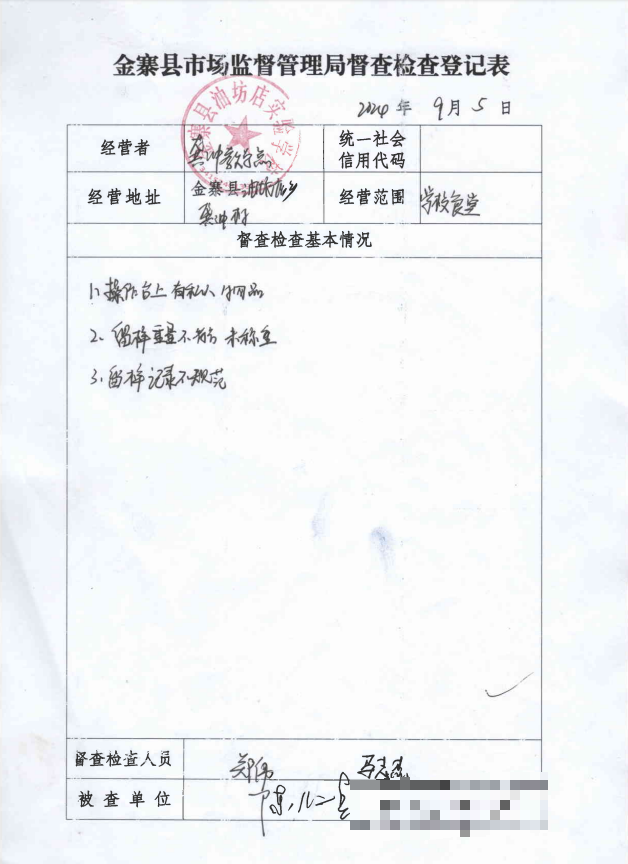 金寨县市场监督管理局督查检查登记表
金寨县油坊店实验学校
2024 年 9 月 5 日
经营者 教学点 统一社会信用代码
经营地址 金寨县油坊店乡 经营范围 学校食堂
督查检查基本情况
1、操作台上有私人用品
2、留样重量不够 未称重
3、留样记录不规范
督查检查人员
被查单位